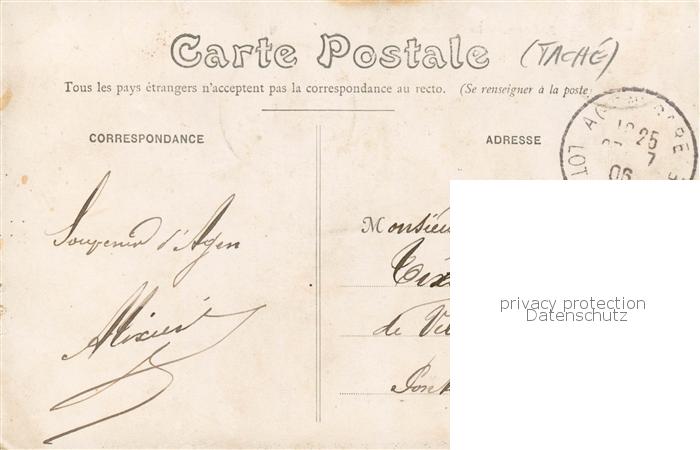 Carte Postale (TACHÉ)
Tous les pays étrangers n'acceptent pas la correspondance au recto. (Se renseigner à la poste)
CORRESPONDANCE
ADRESSE
AGEN GARE
LOT
25
7
06
Souvenir d'Agen
Monsieur
de
privacy protection
Datenschutz